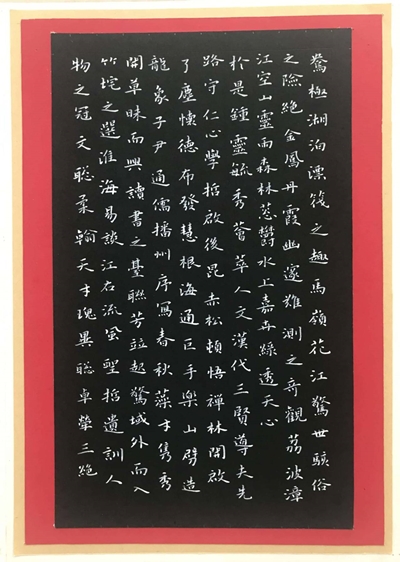 極湖泊漂筏之趣馬嶺花江驚世駭俗
之險絕金鳳丹霞幽邃難測之奇觀荔波漳
江空山靈雨森林蔥鬱水上嘉卉綠透天心
於是鍾靈毓秀薈萃人文漢代三賢導夫先
路守仁心學哲啟後昆赤松頓悟禪林開啟
了塵懷德布發慧根海通巨手樂山劈造
龍象子尹通儒播州序寫春秋藻才雋秀
開草昧而興讀書之臺聯芳竝起驚域外而入
竹垞之選淮海易談江右流風聖哲遺訓人
物之冠文聰柔翰天才瑰異聰卓榮三絕